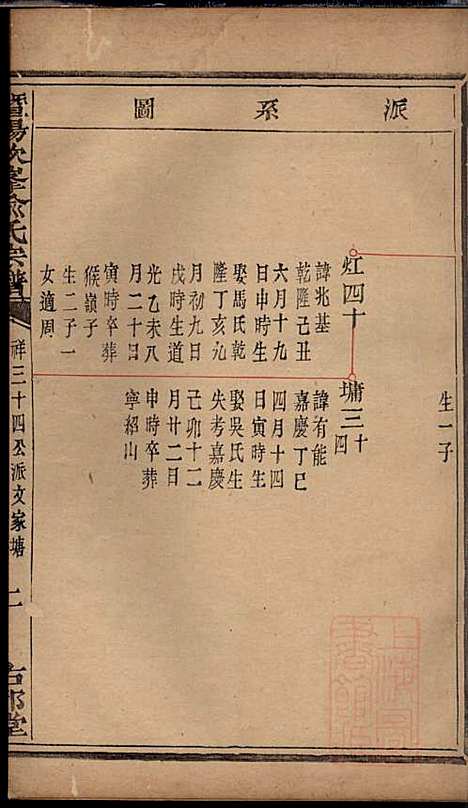 派系圖
生一子
灴四十
諱兆基
乾隆己丑
六月十九
日申時生
娶馬氏乾
隆丁亥九
月初九日
戌時生道
光乙未八
月二十日
寅時卒葬
猴嶺子
生二子一
女適周
墉三十四
諱有能
嘉慶丁巳
四月十四
日寅時生
娶吳氏生
失考嘉慶
己卯十二
月廿二日
申時卒葬
寧紹山
暨陽次峯俞氏宗譜
祥三十四公派文家塘
二